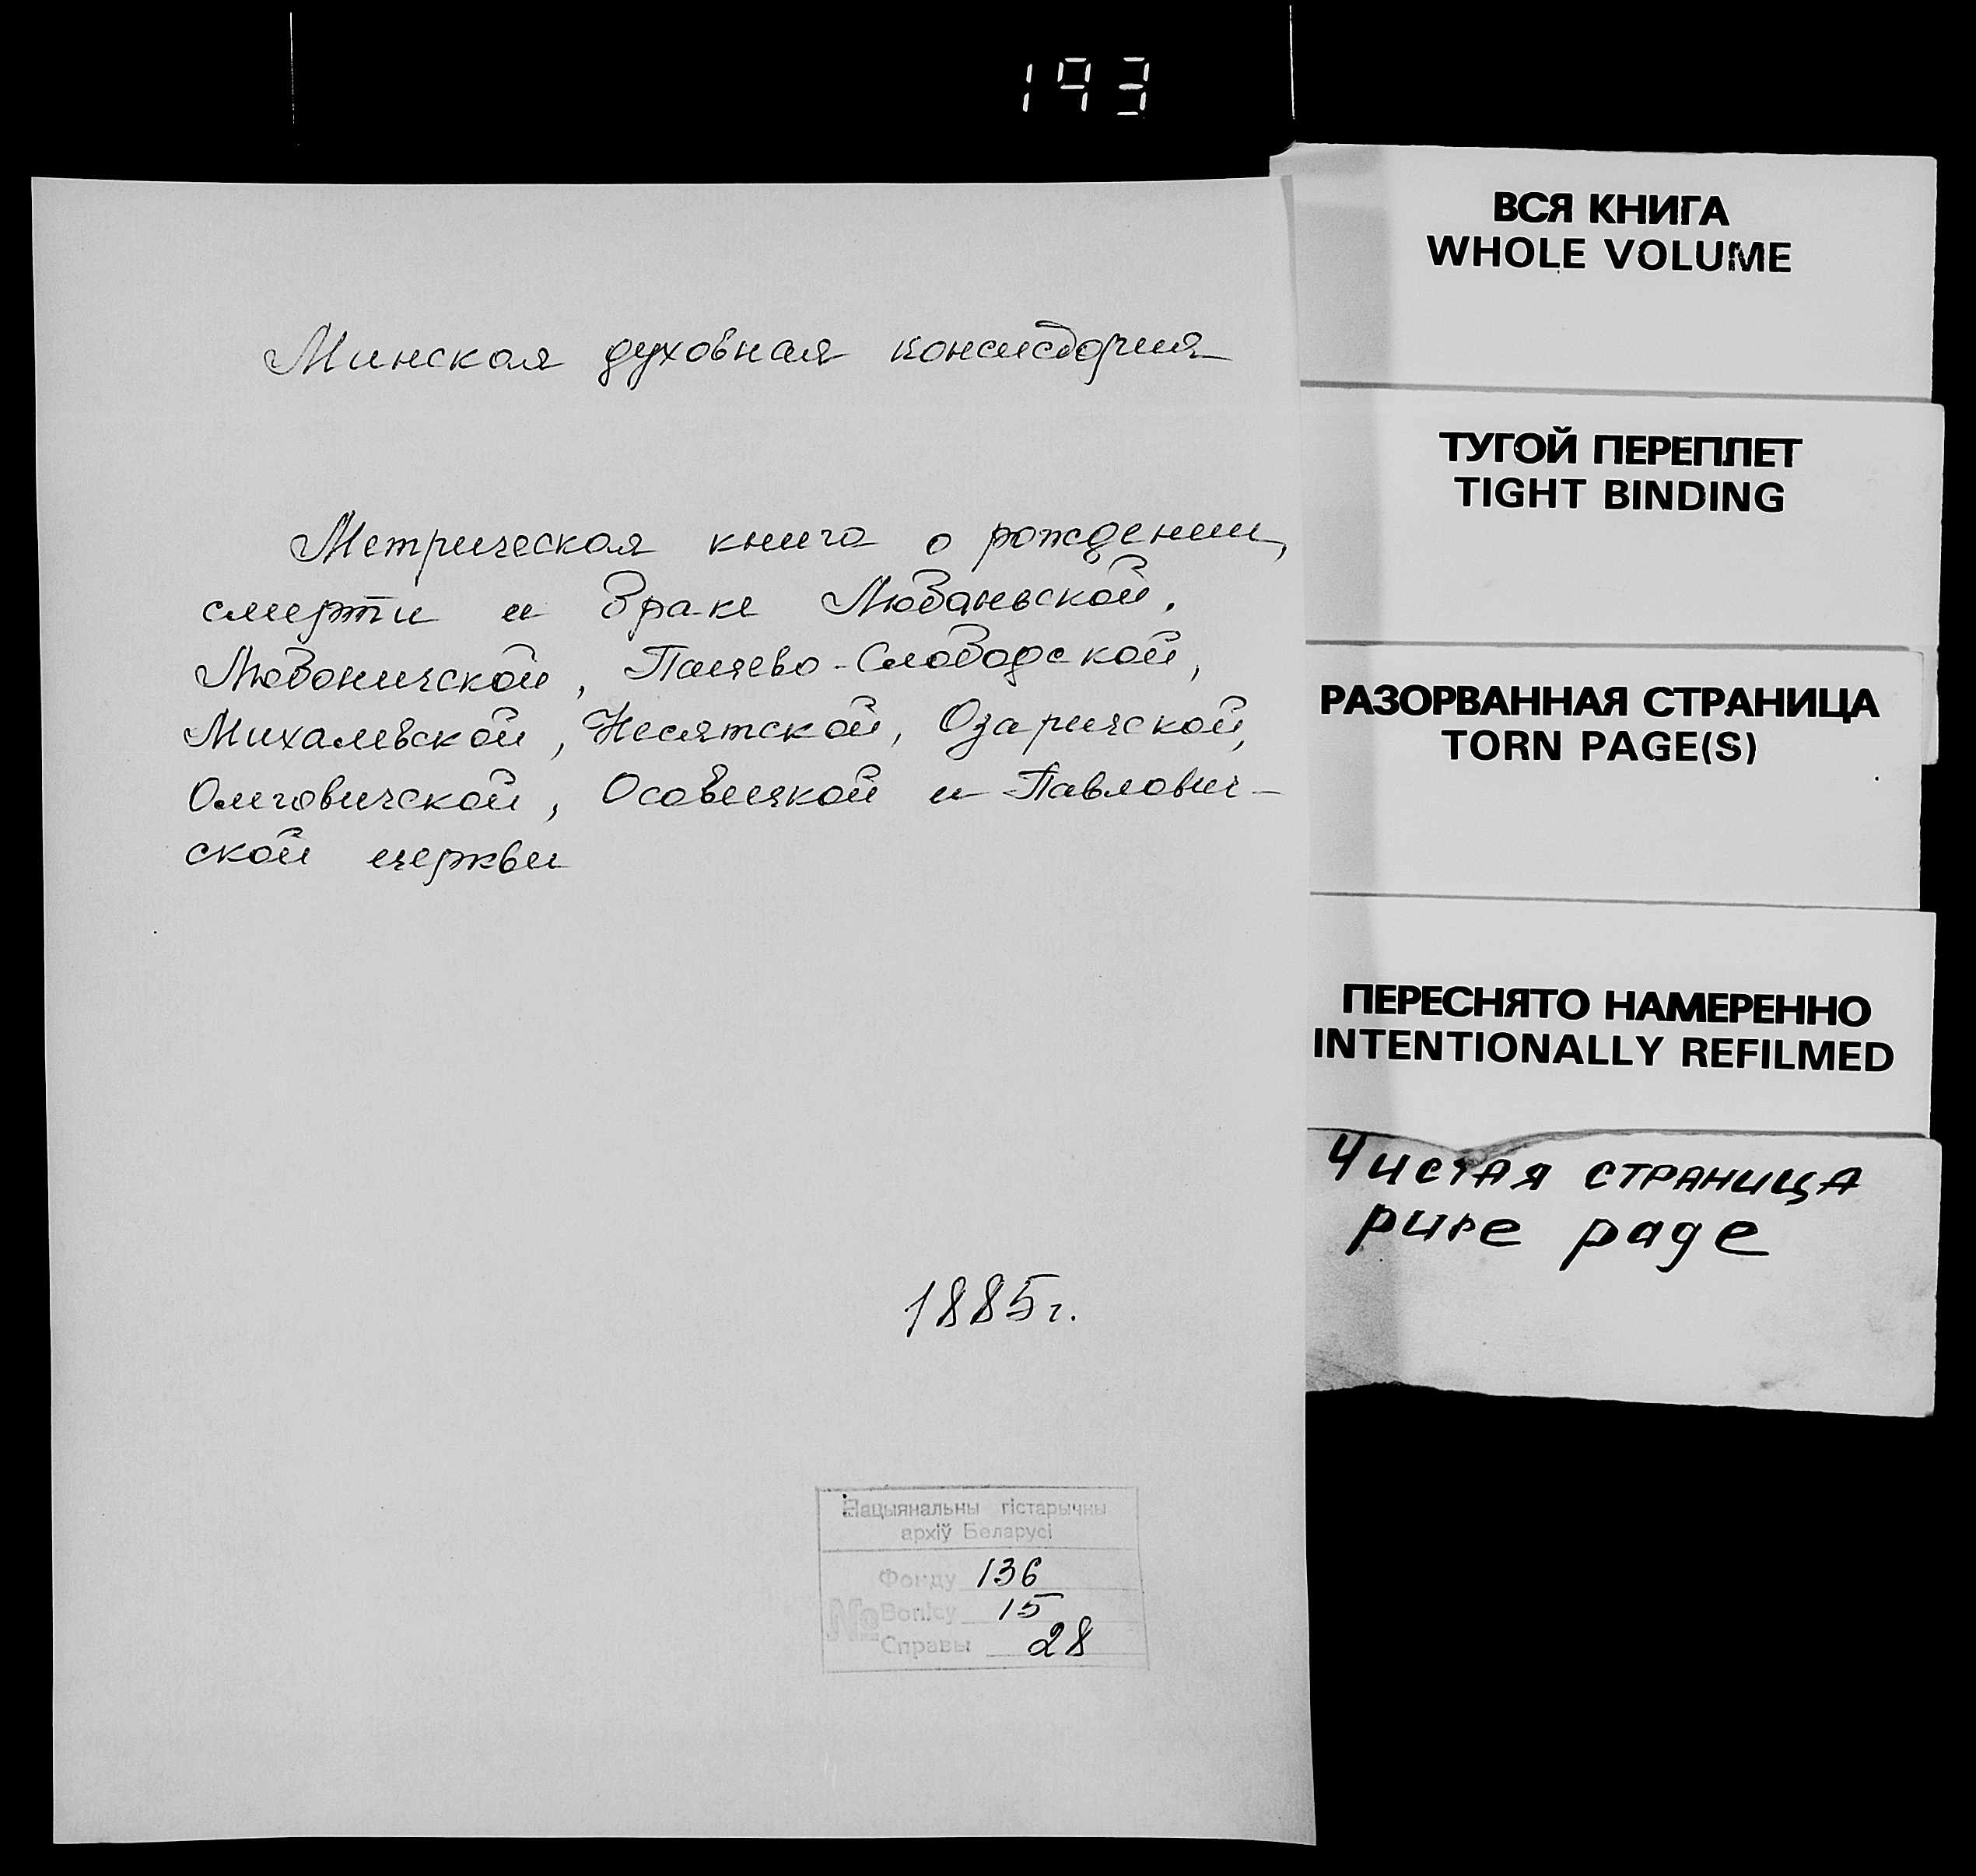 193
Минская духовная консистория
Метрическая книга о рождении,
смерти и браке Любаньской,
Любоничской, Пацево-Слободской,
Михалевской, Несятской, Озаричской,
Олиговичской, Осовецкой и Павлович-
ской церкви
1885г.
Нацыянальны гістарычны
архіў Беларусі
Фонду 136
№ Вопісу 15
Справы 28
ВСЯ КНИГА
WHOLE VOLUME
ТУГОЙ ПЕРЕПЛЕТ
TIGHT BINDING
РАЗОРВАННАЯ СТРАНИЦА
TORN PAGE(S)
ПЕРЕСНЯТО НАМЕРЕННО
INTENTIONALLY REFILMED
Чистая страница
pure page